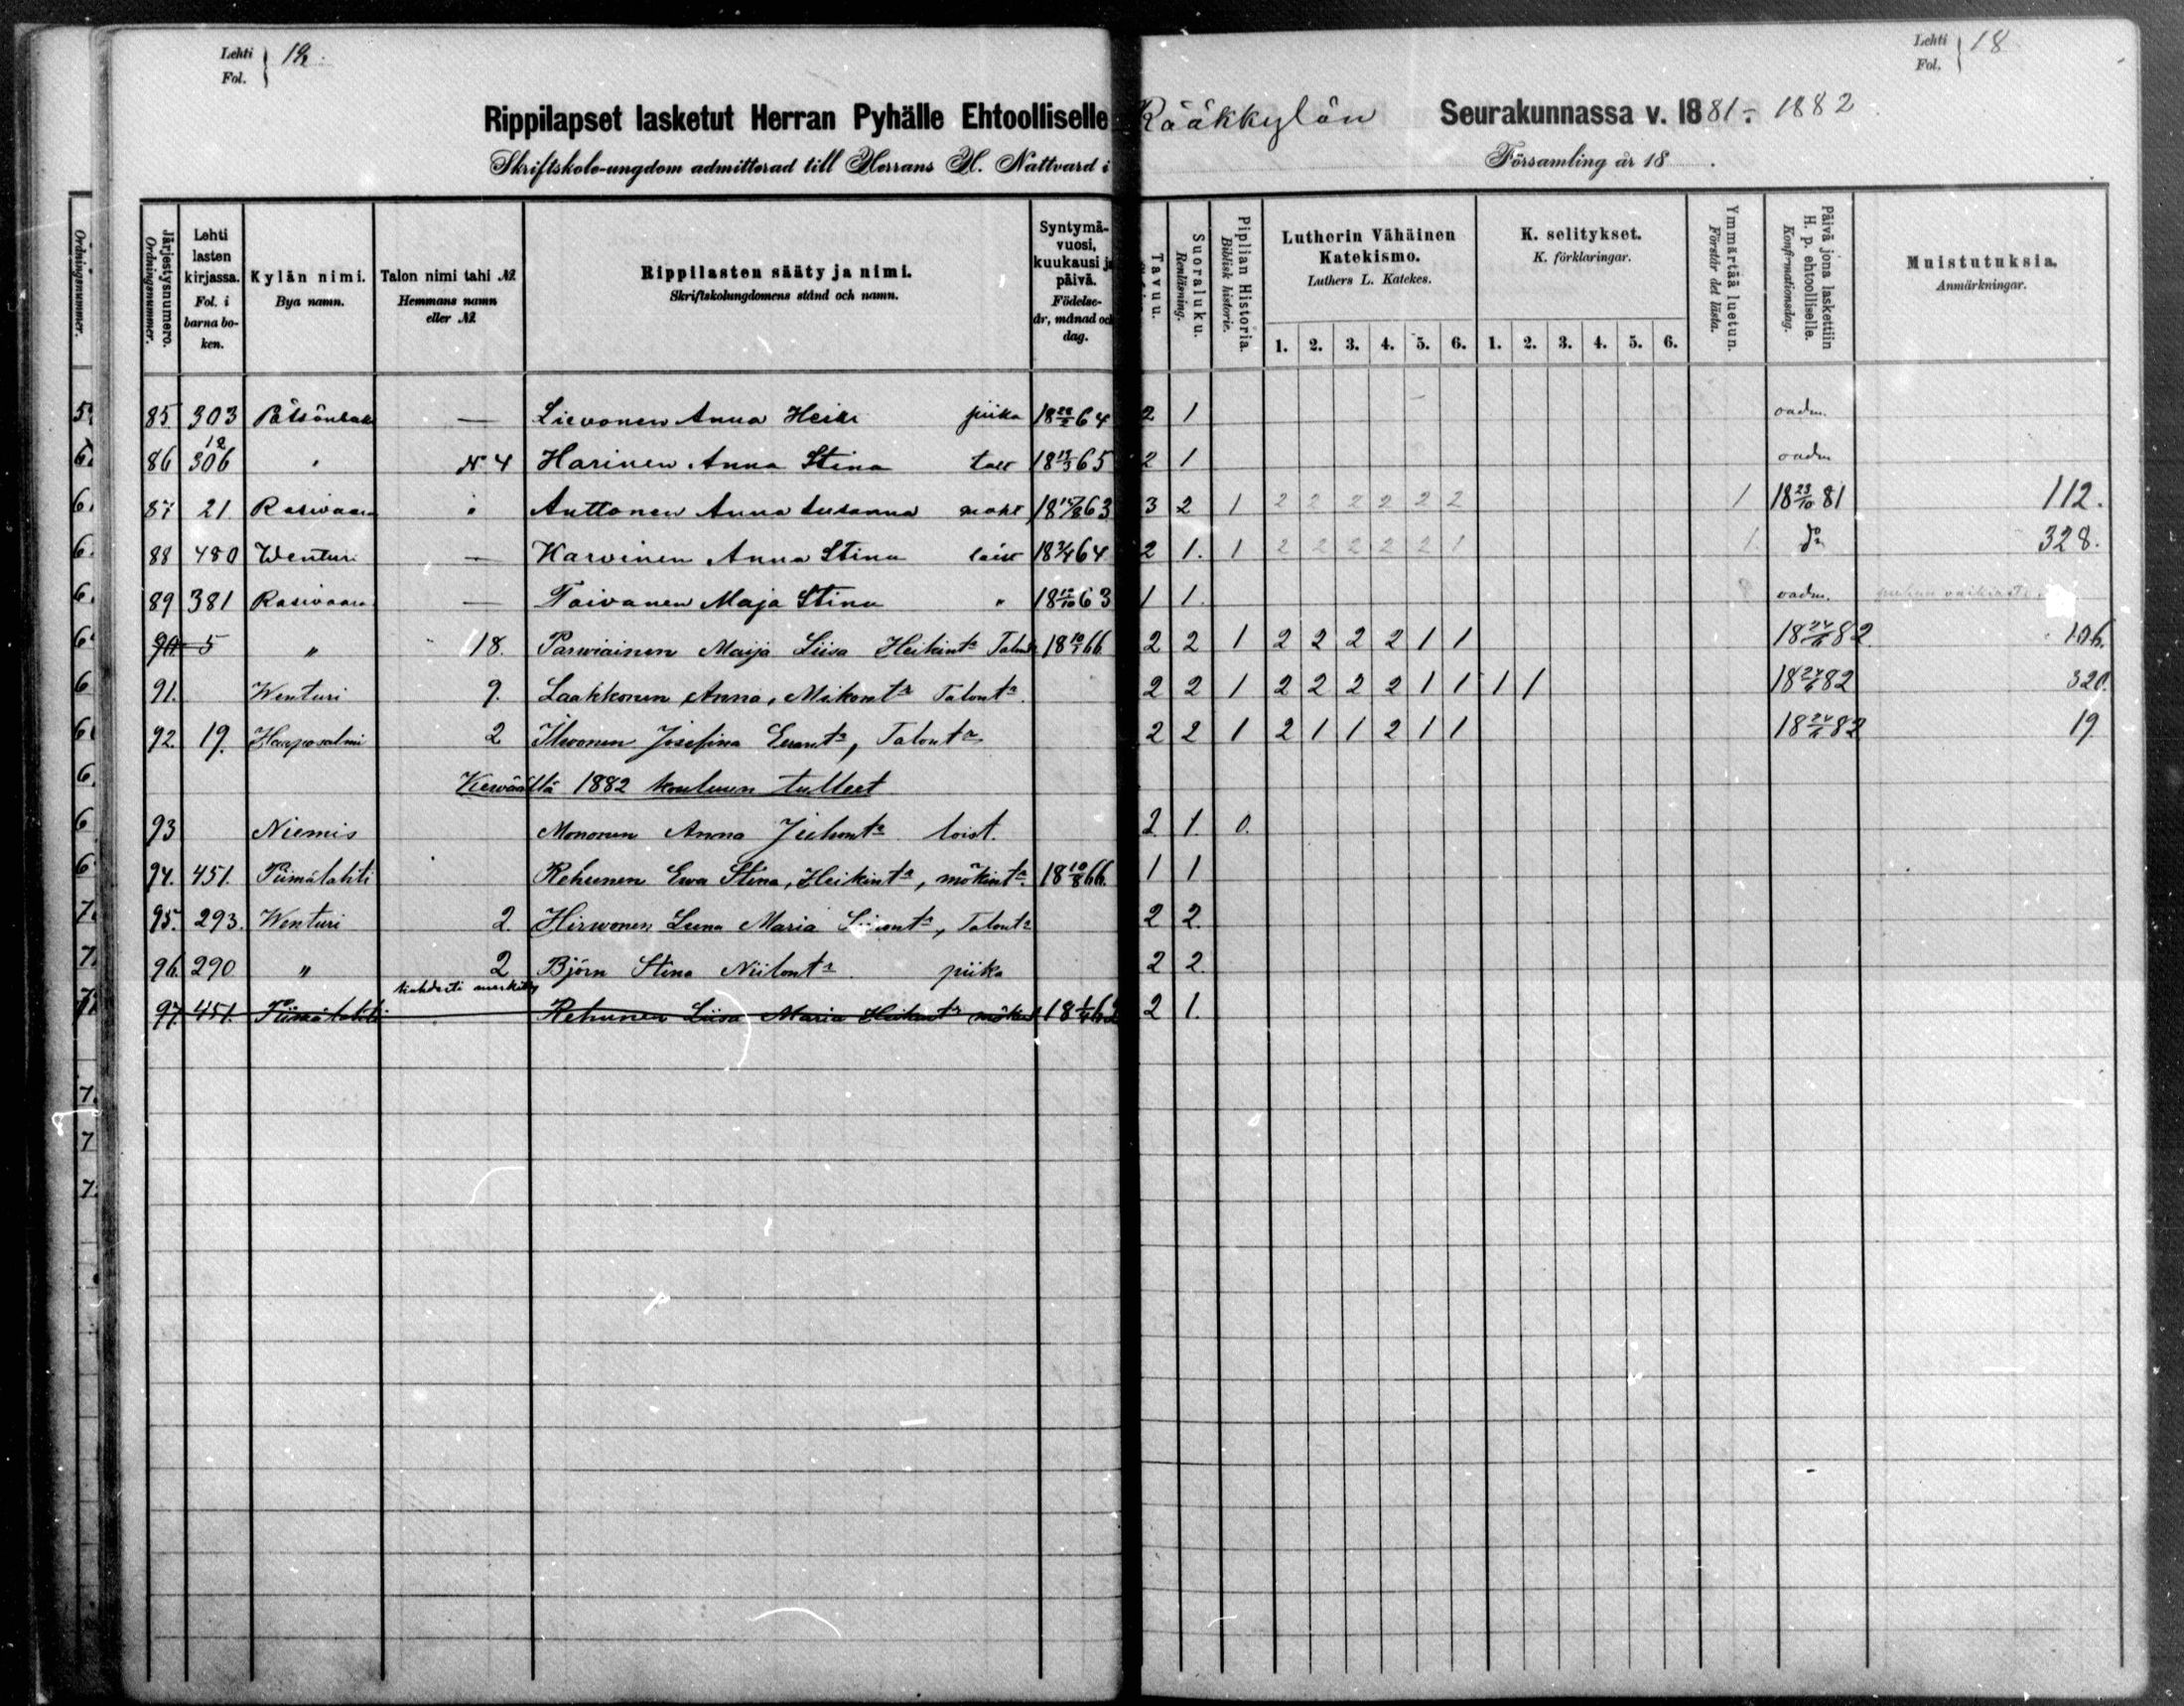 Lehti
Fol. 18.
Lehti
Fol. 18
Rippilapset lasketut Herran Pyhälle Ehtoolliselle Rääkkylän Seurakunnassa v. 1881-1882
Skriftskole-ungdom admitterad till Herrans H. Nattvard i Församling år 18 .
Ordningsnummer.
Järjestysnumero. Ordningsnummer.
Lehti lasten kirjassa. Fol. i barna boken.
Kylän nimi. Bya namn.
Talon nimi tahi № Hemmans namn eller №
Rippilasten sääty ja nimi. Skriftskolungdomens stånd och namn.
Syntymävuosi, kuukausi ja päivä. Födelse-år, månad och dag.
Tavuu.
Suoraluku. Renläsning.
Piplian Historia. Biblisk historie.
Lutherin Vähäinen Katekismo. Luthers L. Katekes.
K. selitykset. K. förklaringar.
Ymmärtää luetun. Förstår det lästa.
Päivä jona laskettiin H. p. ehtoolliselle. Konfirmationsdag.
Muistutuksia. Anmärkningar.
1. 2. 3. 4. 5. 6. 1. 2. 3. 4. 5. 6.
85. 303 — Lievonen Anna Heikr piika 64 2 1 oadm.
86 306 12 " N 4 Harinen Anna Stina 65 2 1 oadm
87 21. Rasivaara " Anttonen Anna Susanna 63 3 2 1 2 2 2 2 2 2 1 18 23/10 81 112.
88 480 Wenturi — Karvinen Anna Stina 18 3/4 64 2 1. 1 2 2 2 2 2 1 1. do 328.
89 381 Rasivaara — Toivanen Maja Stina " 63 1 1. oadm.
90. 5 " 18. Parviainen Maija Liisa Heikint. 66 2 2 1 2 2 2 2 1 1 18 24/6 82. 106.
91. Wenturi 9. Laakkonen Anna, Mikont. Talont. 2 2 1 2 2 2 2 1 1 1 1 18 24/6 82 320.
92. 19. Haaposalmi 2 Ihvonen Josefina Eerant., Talont. 2 2 1 2 1 1 2 1 1 18 24/6 82 19
Keväällä 1882 kouluun tulleet
93 Niemis Mononen Anna Juhont. loist. 2 1. 0.
94. 451. Piimälahti Rehunen Ewa Stina, Heikint., mökint. 18 10/8 66. 1 1
95. 293. Wenturi 2. Hirvonen Leena Maria, Talont. 2 2.
96. 290 " 2 Björn Stina Niilont. piika 2 2.
kahdesti merkitty
97. 451. Piimälahti Rehunen Liisa Maria Heikint. 2 1.